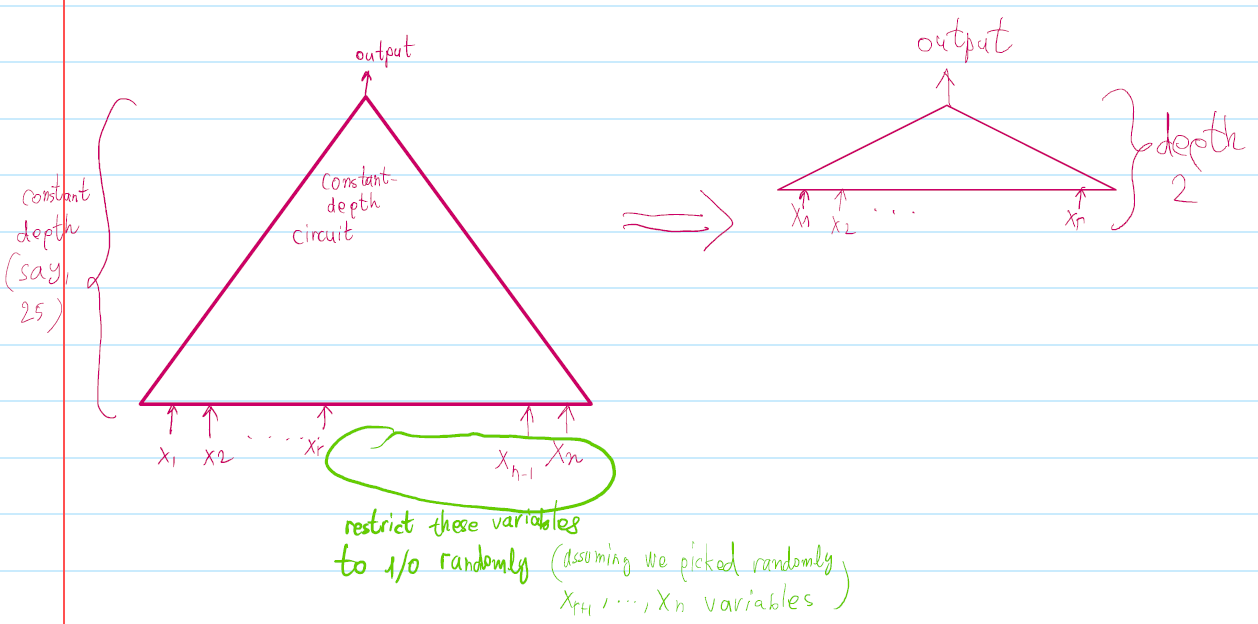 output
Constant-
depth
circuit
constant
depth
(say,
25)
x₁ x₂ ..... xᵣ xₙ₋₁ xₙ
restrict these variables
to 1/0 randomly (assuming we picked randomly
xᵣ₊₁, ..., xₙ variables)
output
x₁ x₂ ... xᵣ
depth
2